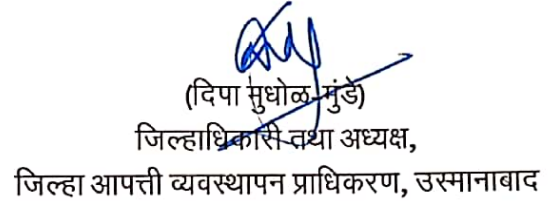 (दिपा मुधोळ-मुंडे)
जिल्हाधिकारी तथा अध्यक्ष,
जिल्हा आपत्ती व्यवस्थापन प्राधिकरण, उस्मानाबाद